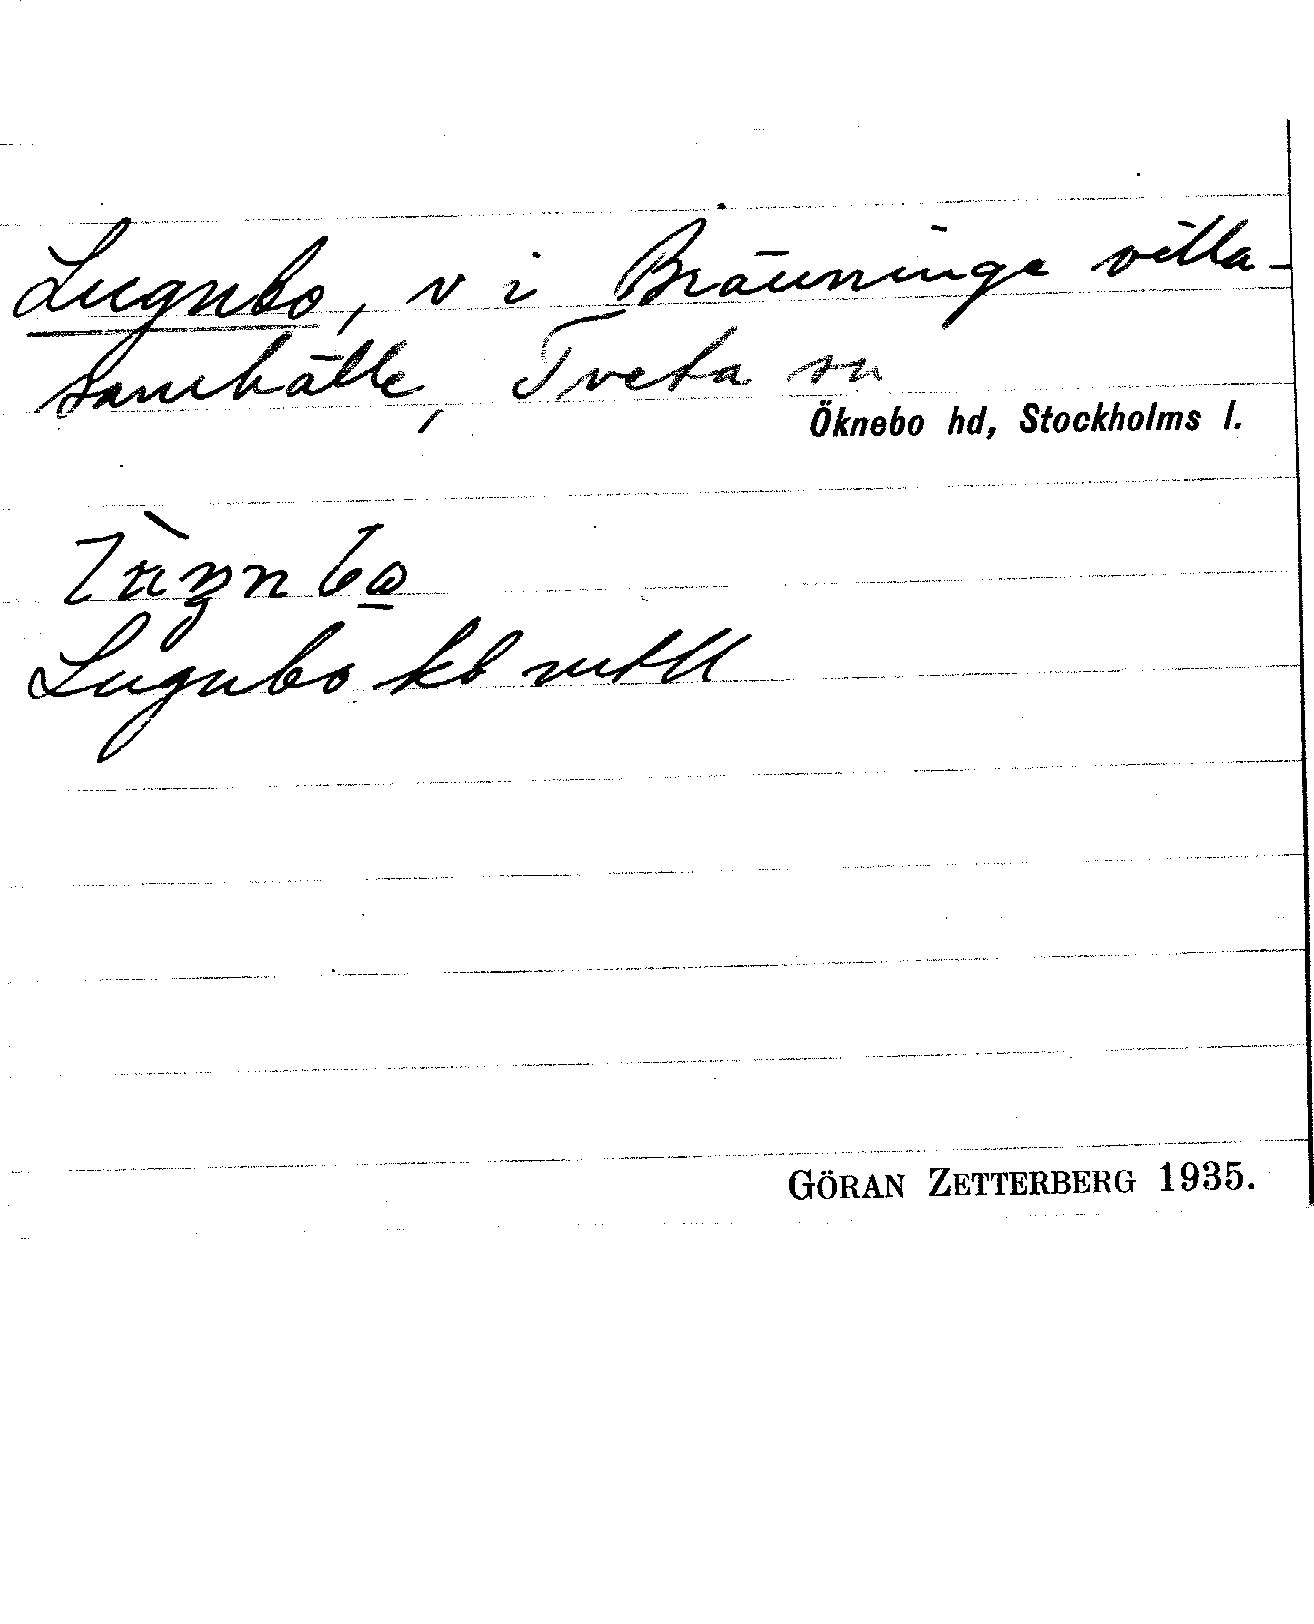 Lugnbo, v i Bränninge villa-
samhälle, Tveta sn
Öknebo hd, Stockholms l.
Lugnbo kb
GÖRAN ZETTERBERG 1935.